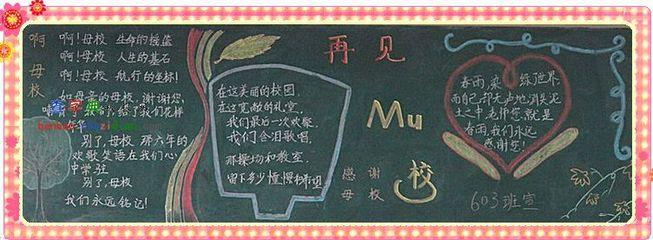 啊
母
校
啊!母校 生命的摇篮
啊!母校 人生的基石
啊!母校 航行的坐标!
如母亲的母校,谢谢您,
给了我们花样
年华
别了,母校 那六年的
欢歌笑语在我们心
中常驻
别了,母校
我们永远铭记!
在这美丽的校园,
在这宽敞的礼堂,
我们最后一次欢聚,
我们含泪歌唱
那操场和教室,
留下多少憧憬和希望
再见
Mu
校
感谢
母校
春雨,染绿世界,
而自己却无声地消失泥
土之中,老师您就是
春雨,我们永远
感谢您!
603班宣